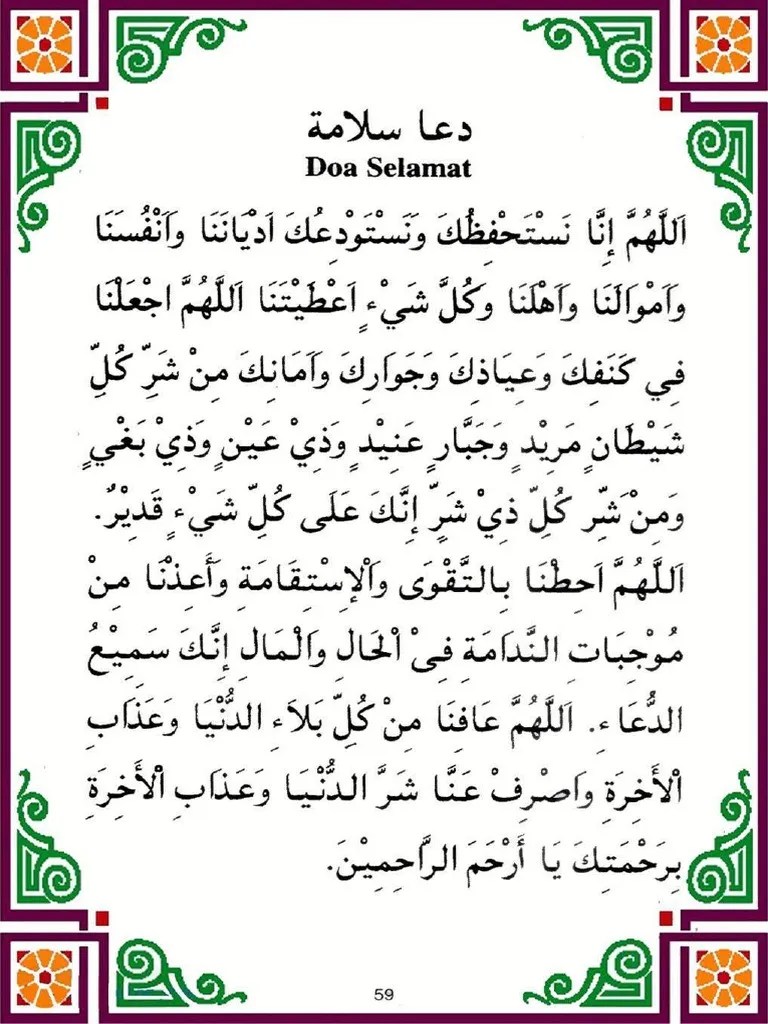 دعا سلامة
Doa Selamat
اَللَّهُمَّ إِنَّا نَسْتَحْفِظُكَ وَنَسْتَوْدِعُكَ اَدْيَانَنَا وَاَنْفُسَنَا
وَاَمْوَالَنَا وَاَهْلَنَا وَكُلَّ شَيْءٍ اَعْطَيْتَنَا اَللَّهُمَّ اجْعَلْنَا
فِي كَنَفِكَ وَعِيَاذِكَ وَجَوَارِكَ وَاَمَانِكَ مِنْ شَرِّ كُلِّ
شَيْطَانٍ مَرِيْدٍ وَجَبَّارٍ عَنِيْدٍ وَذِيْ عَيْنٍ وَذِيْ بَغْيٍ
وَمِنْ شَرِّ كُلِّ ذِيْ شَرٍّ إِنَّكَ عَلَى كُلِّ شَيْءٍ قَدِيْرٌ.
اَللَّهُمَّ اَحِطْنَا بِالتَّقْوَى وَاْلإِسْتِقَامَةِ وَأَعِذْنَا مِنْ
مُوْجِبَاتِ النَّدَامَةِ فِىْ اْلحَالِ وَاْلمَالِ إِنَّكَ سَمِيْعُ
الدُّعَاءِ. اَللَّهُمَّ عَافِنَا مِنْ كُلِّ بَلاَءِ الدُّنْيَا وَعَذَابِ
اْلأَخِرَةِ وَاصْرِفْ عَنَّا شَرَّ الدُّنْيَا وَعَذَابِ اْلأَخِرَةِ
بِرَحْمَتِكَ يَا أَرْحَمَ الرَّاحِمِيْنَ.
59